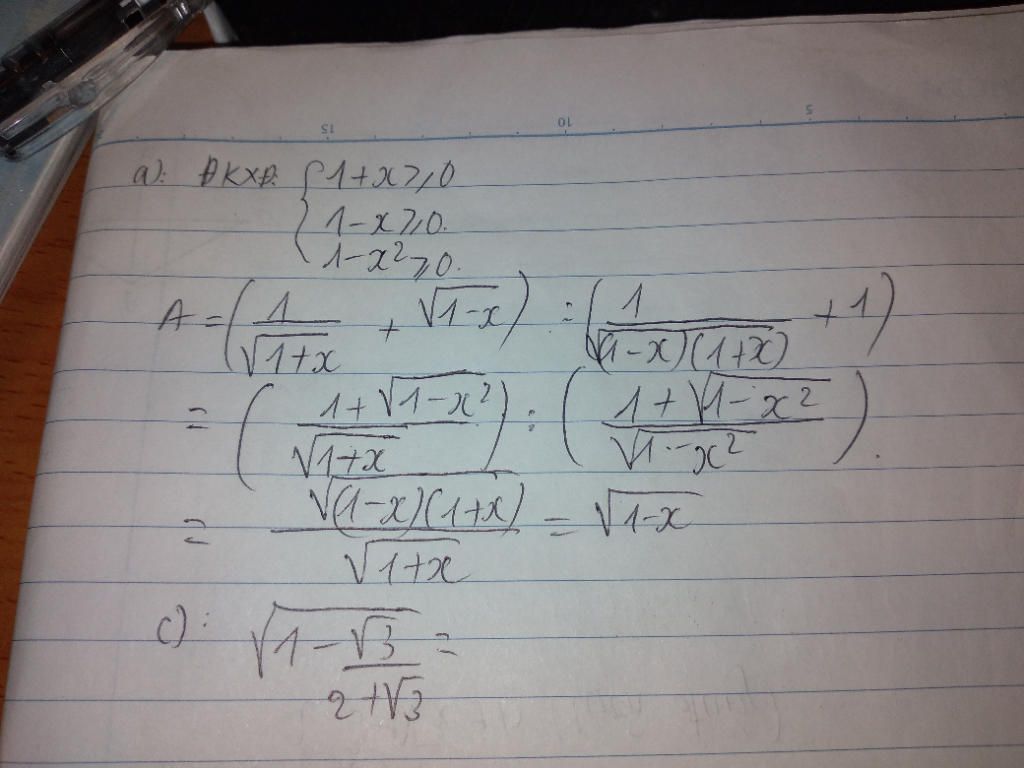 15 10 5
a): ĐKXĐ: { 1+x ≥ 0
1-x ≥ 0.
1-x² ≥ 0.
A = ( 1/√(1+x) + √(1-x) ) : ( 1/√((1-x)(1+x)) + 1 )
= ( (1+√(1-x²))/√(1+x) ) : ( (1+√(1-x²))/√(1-x²) ).
= √((1-x)(1+x))/√(1+x) = √(1-x)
c): √(1 - √3/(2+√3)) =